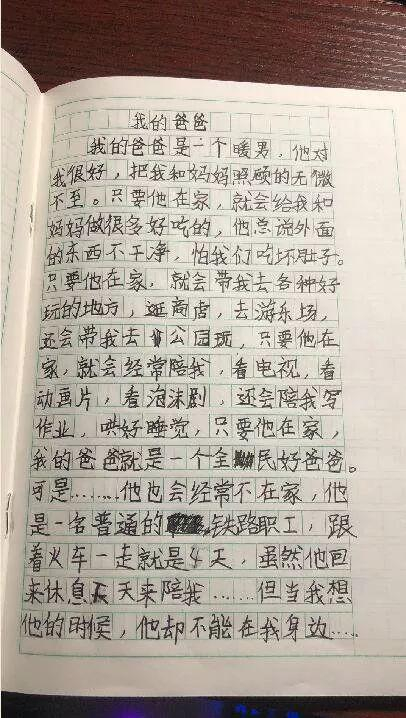 我的爸爸
我的爸爸是一个暖男，他对
我很好，把我和妈妈照顾的无微
不至。只要他在家，就会给我和
妈妈做很多好吃的，他总说外面
的东西不干净，怕我们吃坏肚子。
只要他在家，就会带我去各种好
玩的地方，逛商店，去游乐场，
还会带我去公园玩，只要他在
家，就会经常陪我，看电视，看
动画片，看泡沫剧，还会陪我写
作业，哄好睡觉，只要他在家，
我的爸爸就是一个全民好爸爸。
可是……他也会经常不在家，他
是一名普通的铁路职工，跟
着火车一走就是4天，虽然他回
来休息天天来陪我……但当我想
他的时候，他却不能在我身边……